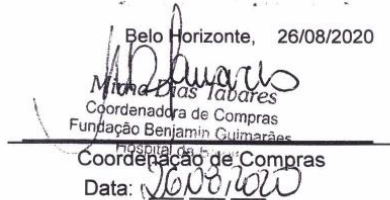 Belo Horizonte, 26/08/2020
Dias Tabares
Coordenadora de Compras
Fundação Benjamin Guimarães
Hospital da
Coordenação de Compras
Data: 26/08/2020